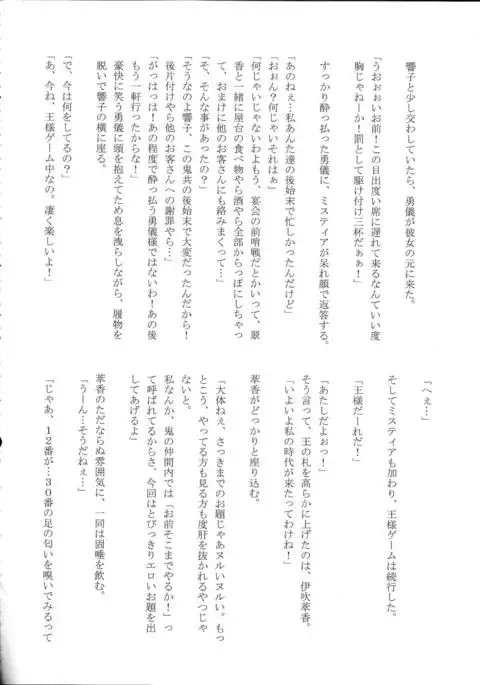 響子と少し交わしていたら、勇儀が彼女の元に来た。
「うおぉぉいお前！この目出度い席に遅れて来るなんていい度
胸じゃねーか！罰として駆け付け三杯だぁぁ！」
すっかり酔っ払った勇儀に、ミスティアが呆れ顔で返答する。
「あのねぇ…私あんた達の後始末で忙しかったんだけど」
「おぉん？何じゃいそれはぁ」
「何じゃいじゃないわよもう、宴会の前哨戦だとかいって、翠
香と一緒に屋台の食べ物やら酒やら全部からっぽにしちゃっ
て、おまけに他のお客さんにも絡みまくって…」
「そ、そんな事があったの？」
「そうなのよ響子、この鬼共の後始末で大変だったんだから！
後片付けやら他のお客さんへの謝罪やら…」
「がっはっは！あの程度で酔っ払う勇儀様ではないわ！あの後
もう一軒行ったからな！」
豪快に笑う勇儀に頭を抱えてため息を洩らしながら、履物を
脱いで響子の横に座る。
「で、今は何をしてるの？」
「あ、今ね、王様ゲーム中なの。凄く楽しいよ！」
「へぇ…」
そしてミスティアも加わり、王様ゲームは続行した。
「王様だーれだ！」
「あたしだよぉっ！」
そう言って、王の札を高らかに上げたのは、伊吹萃香。
「いよいよ私の時代が来たってわけね！」
萃香がどっかりと座り込む。
「大体ねぇ、さっきまでのお題じゃあヌルいヌルい。もっ
とこう、やってる方も見る方も度肝を抜かれるやつじゃ
ないと。
私なんか、鬼の仲間内では「お前そこまでやるか！」っ
て呼ばれてるからさ、今回はとびっきりエロいお題を出
してあげるよ」
萃香のただならぬ雰囲気に、一同は固唾を飲む。
「うーん…そうだねぇ…」
「じゃあ、１２番が…３０番の足の匂いを嗅いでみるって